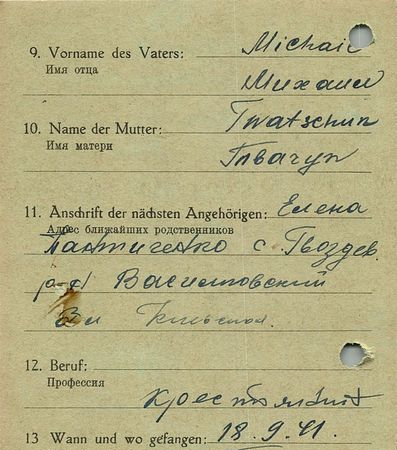 9. Vorname des Vaters: Michail
Имя отца
Михаил
10. Name der Mutter: Twatschun
Имя матери
Твачун
11. Anschrift der nächsten Angehörigen: Елена
Адрес ближайших родственников
с Гвоздев
р-н
Киевская
12. Beruf:
Профессия
Крестьянин
13 Wann und wo gefangen: 18.9.41.